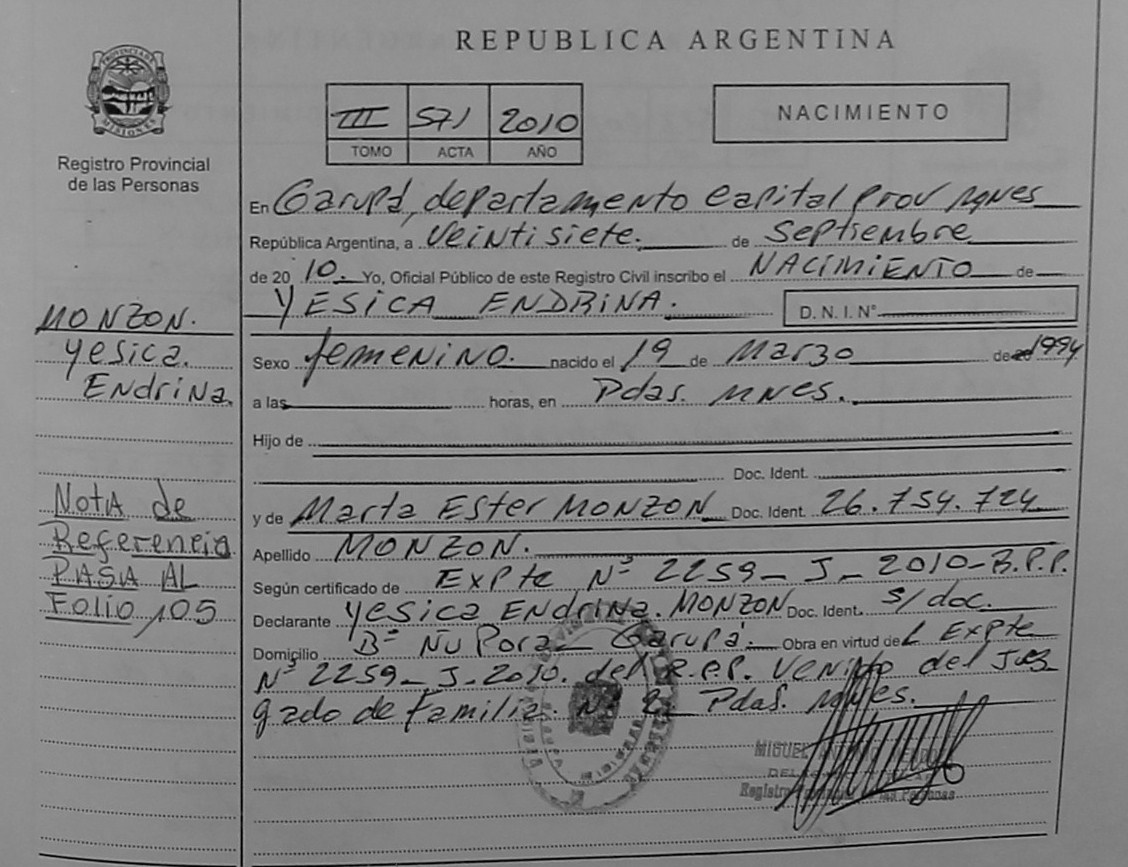 REPUBLICA ARGENTINA
PROVINCIA DE
MISIONES
Registro Provincial
de las Personas
III 571 2010
TOMO ACTA AÑO
NACIMIENTO
En Garupá, departamento Capital Prov Mnes
República Argentina, a Veintisiete. de Septiembre
de 20 10. Yo, Oficial Público de este Registro Civil inscribo el NACIMIENTO de
YESICA ENDRINA. D. N. I. N°
MONZON.
Yesica.
Endrina.
Sexo femenino. nacido el 19 de Marzo de 20 1994
a las horas, en Pdas. MNES.
Hijo de
Doc. Ident.
y de Marta Ester MONZON Doc. Ident. 26.754.724
Apellido MONZON.
Según certificado de EXPte Nº 2259_ J_ 2010_R.P.P.
Declarante Yesica Endrina. MONZON Doc. Ident. s/doc.
Domicilio Bº Ñu Pora_ Garupá. Obra en virtud de L Expte
Nº 2259_ J_2010. del R.P.P. Venido del Juz
gado de familia. Nº 2_ Pdas. Mnes.
Nota de
Referencia
PASA AL
Folio 105
MIGUEL
Registro Personas